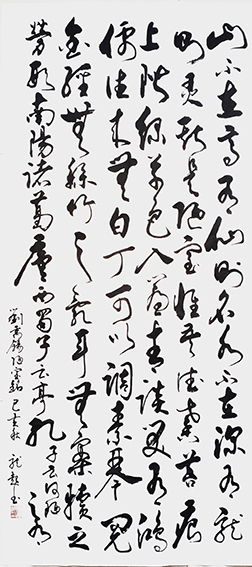 山不在高有仙则名水不在深有龙
则灵斯是陋室惟吾德馨苔痕
上阶绿草色入帘青谈笑有鸿
儒往来無白丁可以调素琴阅
金经無丝竹之乱耳無案牍之
劳形南陽諸葛廬西蜀子云亭孔
子云何陋
之有
劉禹錫陋室銘 己亥秋 龍